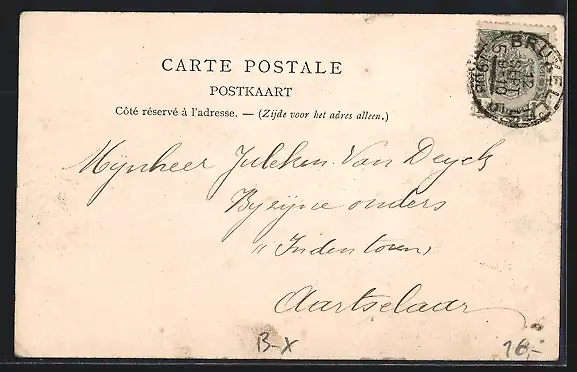 CARTE POSTALE
POSTKAART
Côté réservé à l'adresse. — (Zijde voor het adres alleen.)
BRUXELLES
12 SEPT
1908
Mijnheer Juleken Van Deyck
By zijne ouders
"Inden toren,
Aartselaar
B-X
16,-